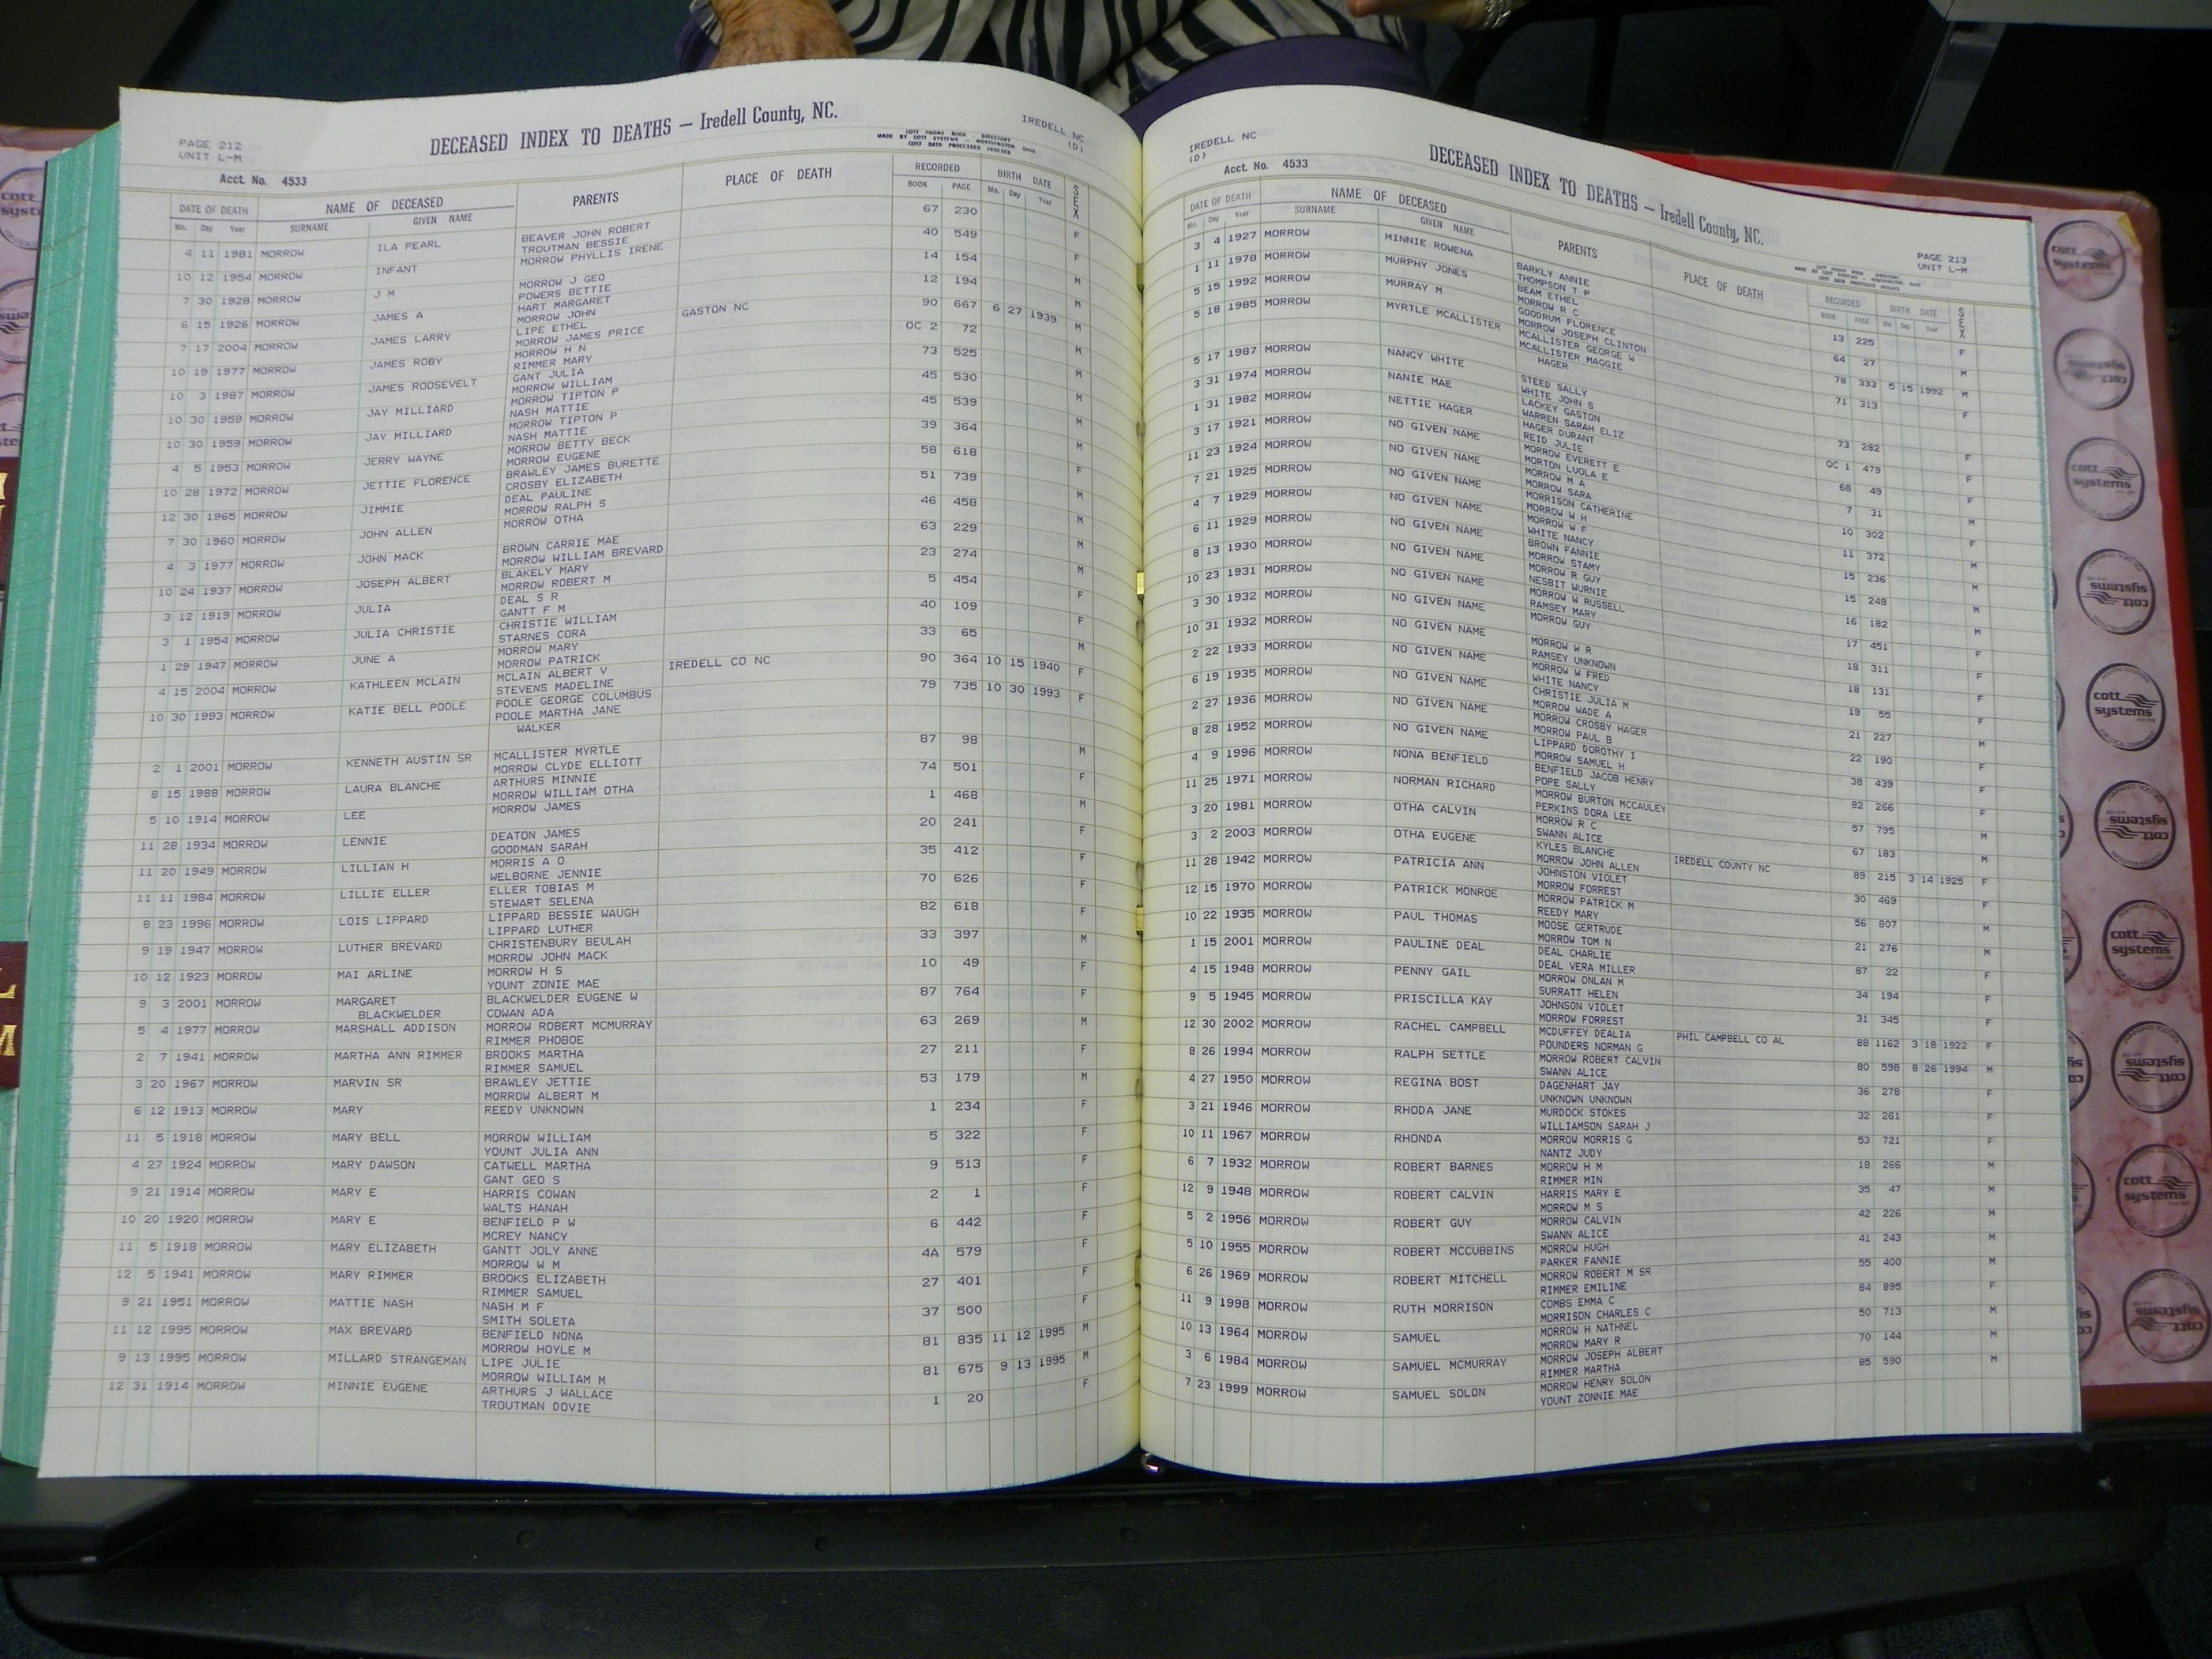 PAGE 212
UNIT L-M
DECEASED INDEX TO DEATHS — Iredell County, NC.
IREDELL NC
(D)
COTT PHONE BOOK - DIRECTORY
MADE BY COTT SYSTEMS - WORTHINGTON, OHIO
COTT DATA PROCESSED INDEXES
Acct. No. 4533
DATE OF DEATH NAME OF DECEASED PARENTS PLACE OF DEATH RECORDED BIRTH DATE SEX
Mo. Day Year SURNAME GIVEN NAME BOOK PAGE Mo. Day Year
4 11 1981 MORROW ILA PEARL BEAVER JOHN ROBERT 67 230 F
TROUTMAN BESSIE
10 12 1954 MORROW INFANT MORROW PHYLLIS IRENE 40 549 F
7 30 1928 MORROW J M MORROW J GEO 14 154 M
POWERS BETTIE
6 15 1926 MORROW JAMES A HART MARGARET 12 194 M
MORROW JOHN
7 17 2004 MORROW JAMES LARRY LIPE ETHEL GASTON NC 90 667 6 27 1939 M
MORROW JAMES PRICE
10 19 1977 MORROW JAMES ROBY MORROW H N OC 2 72 M
RIMMER MARY
10 3 1987 MORROW JAMES ROOSEVELT GANT JULIA 73 525 M
MORROW WILLIAM
10 30 1959 MORROW JAY MILLIARD MORROW TIPTON P 45 530 M
NASH MATTIE
10 30 1959 MORROW JAY MILLIARD MORROW TIPTON P 45 539 M
NASH MATTIE
4 5 1953 MORROW JERRY WAYNE MORROW BETTY BECK 39 364 M
MORROW EUGENE
10 28 1972 MORROW JETTIE FLORENCE BRAWLEY JAMES BURETTE 58 618 F
CROSBY ELIZABETH
12 30 1965 MORROW JIMMIE DEAL PAULINE 51 739 M
MORROW RALPH S
7 30 1960 MORROW JOHN ALLEN MORROW OTHA 46 458 M
4 3 1977 MORROW JOHN MACK BROWN CARRIE MAE 63 229 M
MORROW WILLIAM BREVARD
10 24 1937 MORROW JOSEPH ALBERT BLAKELY MARY 23 274 M
MORROW ROBERT M
3 12 1919 MORROW JULIA DEAL S R 5 454 F
GANTT F M
3 1 1954 MORROW JULIA CHRISTIE CHRISTIE WILLIAM 40 109 F
STARNES CORA
1 29 1947 MORROW JUNE A MORROW MARY 33 65 M
MORROW PATRICK
4 15 2004 MORROW KATHLEEN MCLAIN MCLAIN ALBERT V IREDELL CO NC 90 364 10 15 1940 F
STEVENS MADELINE
10 30 1993 MORROW KATIE BELL POOLE POOLE GEORGE COLUMBUS 79 735 10 30 1993 F
POOLE MARTHA JANE
WALKER
2 1 2001 MORROW KENNETH AUSTIN SR MCALLISTER MYRTLE 87 98 M
MORROW CLYDE ELLIOTT
8 15 1988 MORROW LAURA BLANCHE ARTHURS MINNIE 74 501 F
MORROW WILLIAM OTHA
5 10 1914 MORROW LEE MORROW JAMES 1 468 M
11 28 1934 MORROW LENNIE DEATON JAMES 20 241 F
GOODMAN SARAH
11 20 1949 MORROW LILLIAN H MORRIS A O 35 412 F
WELBORNE JENNIE
11 11 1984 MORROW LILLIE ELLER ELLER TOBIAS M 70 626 F
STEWART SELENA
8 23 1996 MORROW LOIS LIPPARD LIPPARD BESSIE WAUGH 82 618 F
LIPPARD LUTHER
9 19 1947 MORROW LUTHER BREVARD CHRISTENBURY BEULAH 33 397 M
MORROW JOHN MACK
10 12 1923 MORROW MAI ARLINE MORROW H S 10 49 F
YOUNT ZONIE MAE
9 3 2001 MORROW MARGARET BLACKWELDER EUGENE W 87 764 F
BLACKWELDER COWAN ADA
5 4 1977 MORROW MARSHALL ADDISON MORROW ROBERT MCMURRAY 63 269 M
RIMMER PHOBOE
2 7 1941 MORROW MARTHA ANN RIMMER BROOKS MARTHA 27 211 F
RIMMER SAMUEL
3 20 1967 MORROW MARVIN SR BRAWLEY JETTIE 53 179 M
MORROW ALBERT M
6 12 1913 MORROW MARY REEDY UNKNOWN 1 234 F
11 5 1918 MORROW MARY BELL MORROW WILLIAM 5 322 F
YOUNT JULIA ANN
4 27 1924 MORROW MARY DAWSON CATWELL MARTHA 9 513 F
GANT GEO S
9 21 1914 MORROW MARY E HARRIS COWAN 2 1 F
WALTS HANAH
10 20 1920 MORROW MARY E BENFIELD P W 6 442 F
MCREY NANCY
11 5 1918 MORROW MARY ELIZABETH GANTT JOLY ANNE 4A 579 F
MORROW W M
12 5 1941 MORROW MARY RIMMER BROOKS ELIZABETH 27 401 F
RIMMER SAMUEL
9 21 1951 MORROW MATTIE NASH NASH M F 37 500 F
SMITH SOLETA
11 12 1995 MORROW MAX BREVARD BENFIELD NONA 81 835 11 12 1995 M
MORROW HOYLE M
9 13 1995 MORROW MILLARD STRANGEMAN LIPE JULIE 81 675 9 13 1995 M
MORROW WILLIAM M
12 31 1914 MORROW MINNIE EUGENE ARTHURS J WALLACE 1 20 F
TROUTMAN DOVIE
IREDELL NC
(D)
DECEASED INDEX TO DEATHS — Iredell County, NC.
PAGE 213
UNIT L-M
Acct. No. 4533
DATE OF DEATH NAME OF DECEASED PARENTS PLACE OF DEATH RECORDED BIRTH DATE SEX
Mo. Day Year SURNAME GIVEN NAME BOOK PAGE Mo. Day Year
3 4 1927 MORROW MINNIE ROWENA BARKLY ANNIE 13 225 F
THOMPSON T P
1 11 1978 MORROW MURPHY JONES BEAM ETHEL 64 27 M
MORROW R C
5 15 1992 MORROW MURRAY M GOODRUM FLORENCE 78 333 5 15 1992 M
MORROW JOSEPH CLINTON
5 18 1985 MORROW MYRTLE MCALLISTER MCALLISTER GEORGE W 71 313 F
MCALLISTER MAGGIE
HAGER
5 17 1987 MORROW NANCY WHITE STEED SALLY 73 282 F
WHITE JOHN S
3 31 1974 MORROW NANIE MAE LACKEY GASTON OC 1 479 F
WARREN SARAH ELIZ
1 31 1982 MORROW NETTIE HAGER HAGER DURANT 68 49 F
REID JULIE
3 17 1921 MORROW NO GIVEN NAME MORROW EVERETT E 7 31 M
MORTON LUOLA E
11 23 1924 MORROW NO GIVEN NAME MORROW M A 10 302 F
MORROW SARA
7 21 1925 MORROW NO GIVEN NAME MORRISON CATHERINE 11 372 M
MORROW W H
4 7 1929 MORROW NO GIVEN NAME MORROW W F 15 236 M
WHITE NANCY
6 11 1929 MORROW NO GIVEN NAME BROWN FANNIE 15 248 M
MORROW STAMY
8 13 1930 MORROW NO GIVEN NAME MORROW R GUY 16 182
NESBIT WURNIE
10 23 1931 MORROW NO GIVEN NAME MORROW W RUSSELL 17 451 F
RAMSEY MARY
3 30 1932 MORROW NO GIVEN NAME MORROW GUY 18 311 F
10 31 1932 MORROW NO GIVEN NAME MORROW W R 18 131 F
RAMSEY UNKNOWN
2 22 1933 MORROW NO GIVEN NAME MORROW W FRED 19 55
WHITE NANCY
6 19 1935 MORROW NO GIVEN NAME CHRISTIE JULIA M 21 227 M
MORROW WADE A
2 27 1936 MORROW NO GIVEN NAME MORROW CROSBY HAGER 22 190 F
MORROW PAUL B
8 28 1952 MORROW NO GIVEN NAME LIPPARD DOROTHY I 38 439 F
MORROW SAMUEL H
4 9 1996 MORROW NONA BENFIELD BENFIELD JACOB HENRY 82 266 F
POPE SALLY
11 25 1971 MORROW NORMAN RICHARD MORROW BURTON MCCAULEY 57 795 M
PERKINS DORA LEE
3 20 1981 MORROW OTHA CALVIN MORROW R C 67 183 M
SWANN ALICE
3 2 2003 MORROW OTHA EUGENE KYLES BLANCHE IREDELL COUNTY NC 89 215 3 14 1925 F
MORROW JOHN ALLEN
11 28 1942 MORROW PATRICIA ANN JOHNSTON VIOLET 30 469 F
MORROW FORREST
12 15 1970 MORROW PATRICK MONROE MORROW PATRICK M 56 807 M
REEDY MARY
10 22 1935 MORROW PAUL THOMAS MOOSE GERTRUDE 21 276 M
MORROW TOM N
1 15 2001 MORROW PAULINE DEAL DEAL CHARLIE 87 22 F
DEAL VERA MILLER
4 15 1948 MORROW PENNY GAIL MORROW ONLAN M 34 194 F
SURRATT HELEN
9 5 1945 MORROW PRISCILLA KAY JOHNSON VIOLET 31 345 F
MORROW FORREST
12 30 2002 MORROW RACHEL CAMPBELL MCDUFFEY DEALIA PHIL CAMPBELL CO AL 88 1162 3 18 1922 F
POUNDERS NORMAN G
8 26 1994 MORROW RALPH SETTLE MORROW ROBERT CALVIN 80 598 8 26 1994 M
SWANN ALICE
4 27 1950 MORROW REGINA BOST DAGENHART JAY 36 278 F
UNKNOWN UNKNOWN
3 21 1946 MORROW RHODA JANE MURDOCK STOKES 32 261 F
WILLIAMSON SARAH J
10 11 1967 MORROW RHONDA MORROW MORRIS G 53 721 F
NANTZ JUDY
6 7 1932 MORROW ROBERT BARNES MORROW H M 18 266 M
RIMMER MIN
12 9 1948 MORROW ROBERT CALVIN HARRIS MARY E 35 47 M
MORROW M S
5 2 1956 MORROW ROBERT GUY MORROW CALVIN 42 226 M
SWANN ALICE
5 10 1955 MORROW ROBERT MCCUBBINS MORROW HUGH 41 243 M
PARKER FANNIE
6 26 1969 MORROW ROBERT MITCHELL MORROW ROBERT M SR 55 400 M
RIMMER EMILINE
11 9 1998 MORROW RUTH MORRISON COMBS EMMA C 84 895 F
MORRISON CHARLES C
10 13 1964 MORROW SAMUEL MORROW H NATHNEL 50 713 M
MORROW MARY R
3 6 1984 MORROW SAMUEL MCMURRAY MORROW JOSEPH ALBERT 70 144 M
RIMMER MARTHA
7 23 1999 MORROW SAMUEL SOLON MORROW HENRY SOLON 85 590 M
YOUNT ZONNIE MAE
cott systems